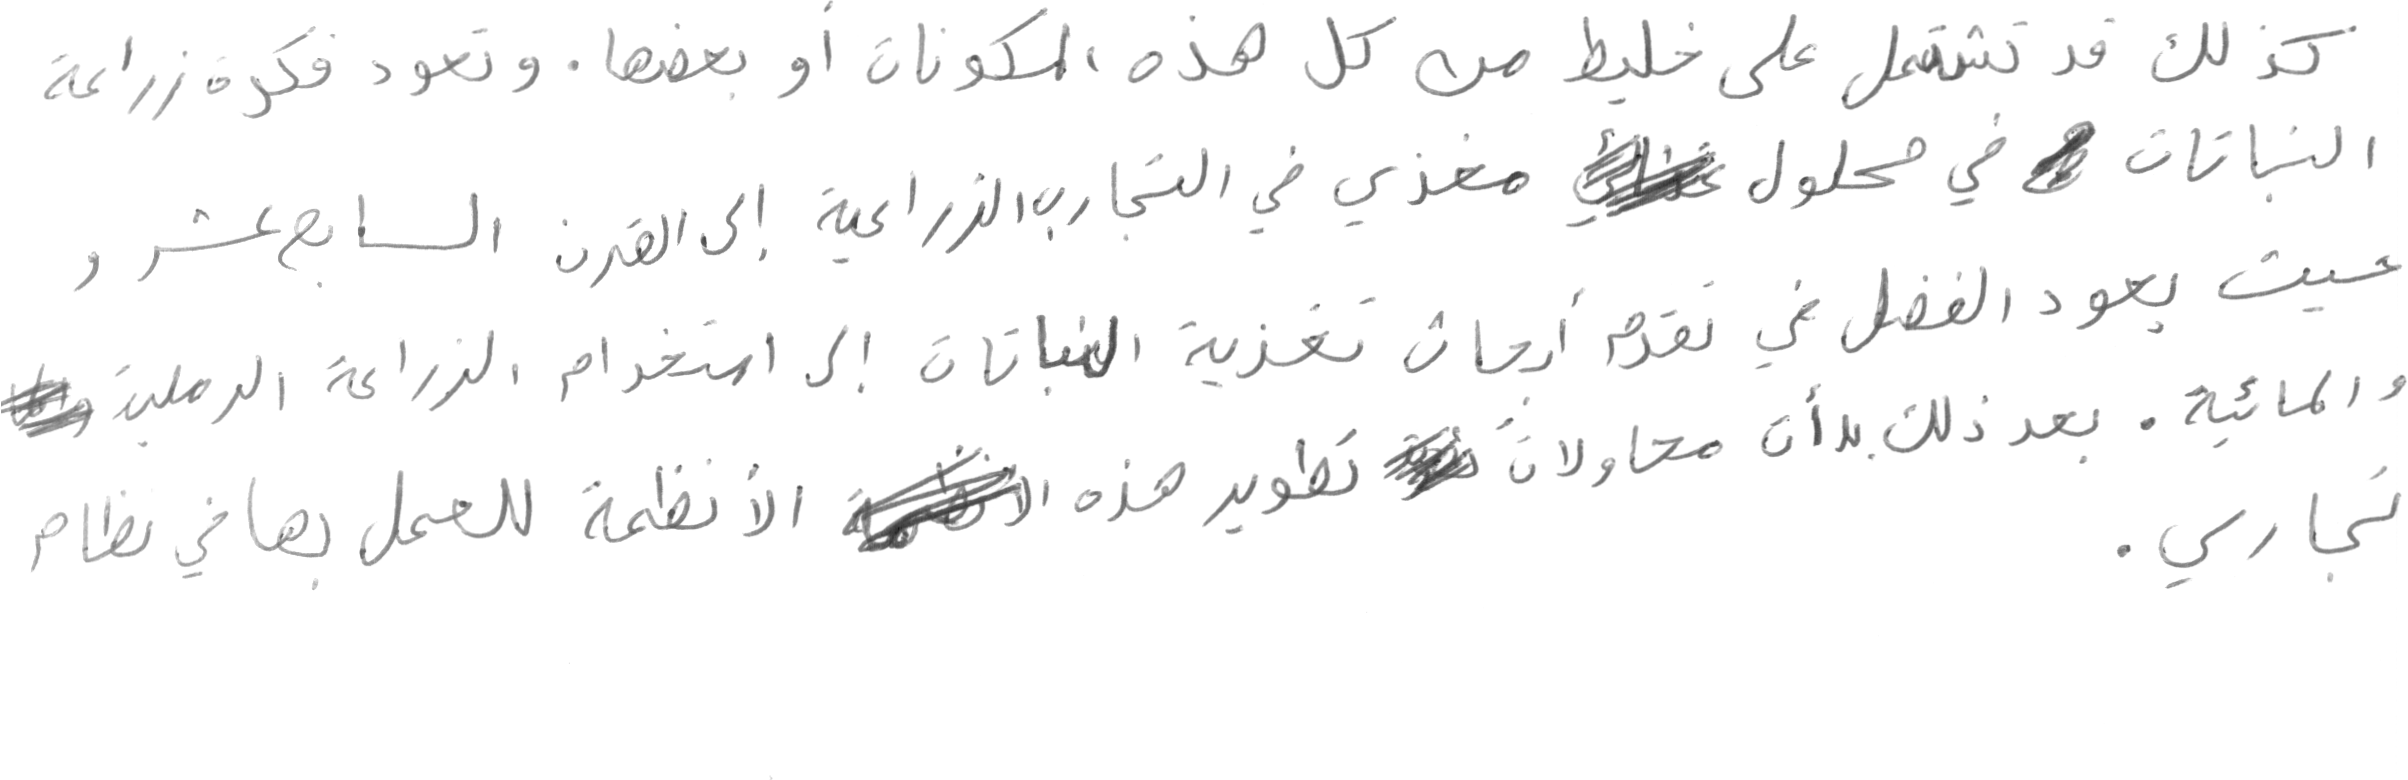 كذلك قد تشتمل على خليط من كل هذه المكونات أو بعضها. وتعود فكرة زراعة
النباتات في محلول مغذي في التجارب الزراعية إلى القرن السابع عشر و
حيث يعود الفضل في تقدم أبحاث تغذية النباتات إلى استخدام الزراعة الرملية
والمائية. بعد ذلك بدأت محاولات تطوير هذه الأنظمة للعمل بها في نظام
تجاري.